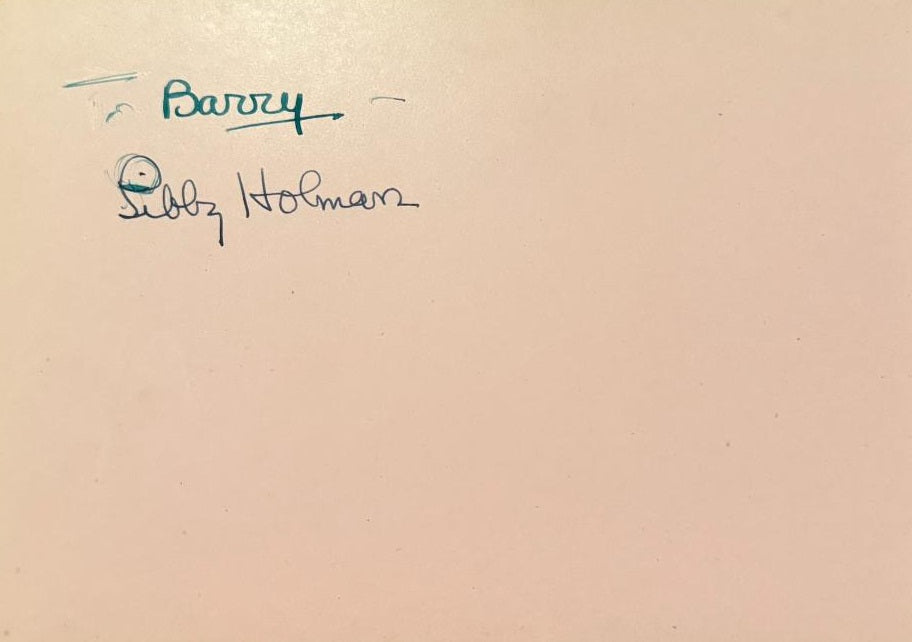 Barry
Libby Holman